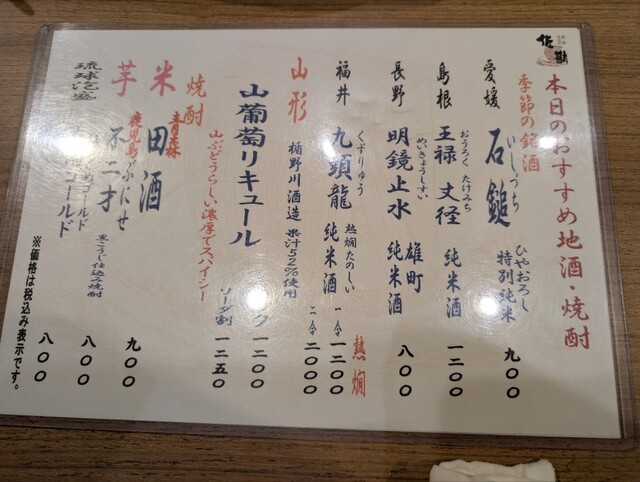 本日のおすすめ地酒・焼酎
季節の銘酒
愛媛
石鎚
いしづち
ひやおろし
特別純米
九〇〇
島根
王禄 丈径
おうろく たけみち
純米酒
一二〇〇
長野
明鏡止水
めいきょうしすい
雄町
純米酒
八〇〇
福井
九頭龍
くずりゅう
熱燗たのしい
純米酒
熱燗
一合
一二〇〇
二合
二〇〇〇
山形
楯野川酒造 果汁52%使用
山葡萄リキュール
一二〇〇
山ぶどうらしい濃厚でスパイシー
ソーダ割
一二五〇
焼酎
米
青森
田酒
芋
鹿児島
不二才
ぶにせ
黒こうじ仕込み焼酎
九〇〇
琉球泡盛
ゴールド
八〇〇
八〇〇
※価格は税込み表示です。